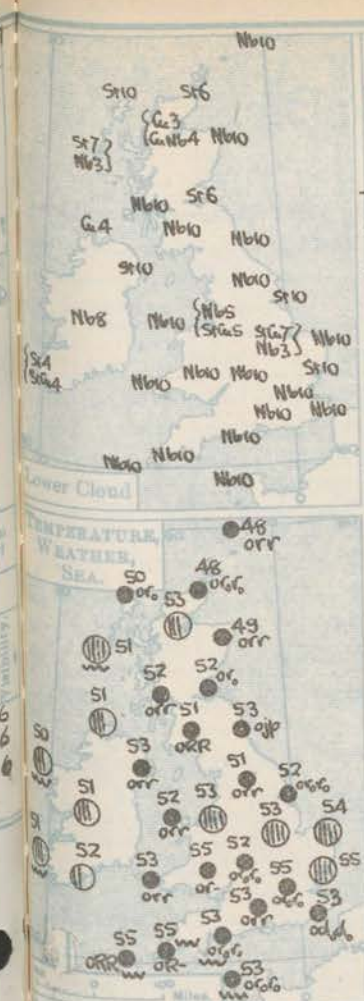 Nb10
St10 St6
{Cu3
St7} {CuNb4 Nb10
Nb3}
Nb10 St6
Cu4 Nb10 Nb10
St10
Nb10
St10
Nb8 Nb10 {Nb5 StCu7} Nb10
{StCu5 Nb3}
{St4 St10
{StCu4 Nb10 Nb10 Nb10
Nb10
Nb10 Nb10
Nb10
Nb10 Nb10
Nb10
Lower Cloud
TEMPERATURE,
WEATHER,
SEA.
48
orr
50 or₀
48 or₀r₀
53
49 orr
51
52 orr
52 or₀
51
51 oRR
53 ojp
50
53 orr
51 orr
52 or₀r₀
51
52 orr
53
53
54
51
52
53 orr
55 or-
52 or₀r₀
55 or₀r₀
55
53 orr
53 od₀d₀
55 oRR
55 oR-
53 or₀r₀
53 or₀r₀
Miles